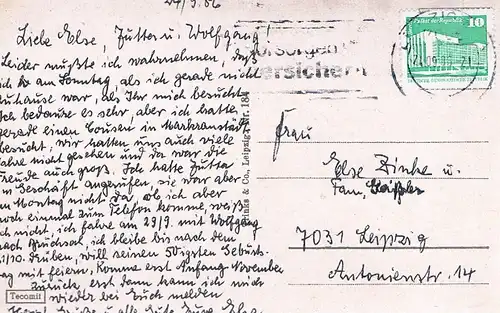 24/9.86
Liebe Else, Jutta u. Wolfgang!
Leider mußte ich wahrnehmen, daß
ich am Sonntag als ich gerade nicht
zuhause war, als Ihr mich besuchtet
Ich bedaure es sehr, aber ich hatte
gerade einen Cousen in Markranstädt
besucht, wir hatten uns auch viele
Jahre nicht gesehen und da war die
Freude auch groß. Ich hatte Jutta
im Geschäft angerufen, sie war aber
am Montag nicht da, ob ich aber
noch einmal zum Telefon komme, weiß
ich nicht, ich fahre am 29/9. mit Wolfgang
nach Bruchsal, ich bleibe bis nach dem
/10. drüben, will seinen 50zigsten Geburts-
tag mit feiern, komme erst Anfang November
zurück, erst dann kann ich mich
wieder bei Euch melden
u. alles Gute
Tecomit
& Co., Leipzig
184
vorsorgen
versichern
Palast der Republik
10
Frau
Else Zinke u.
Fam.
7031 Leipzig
Antonienstr. 14